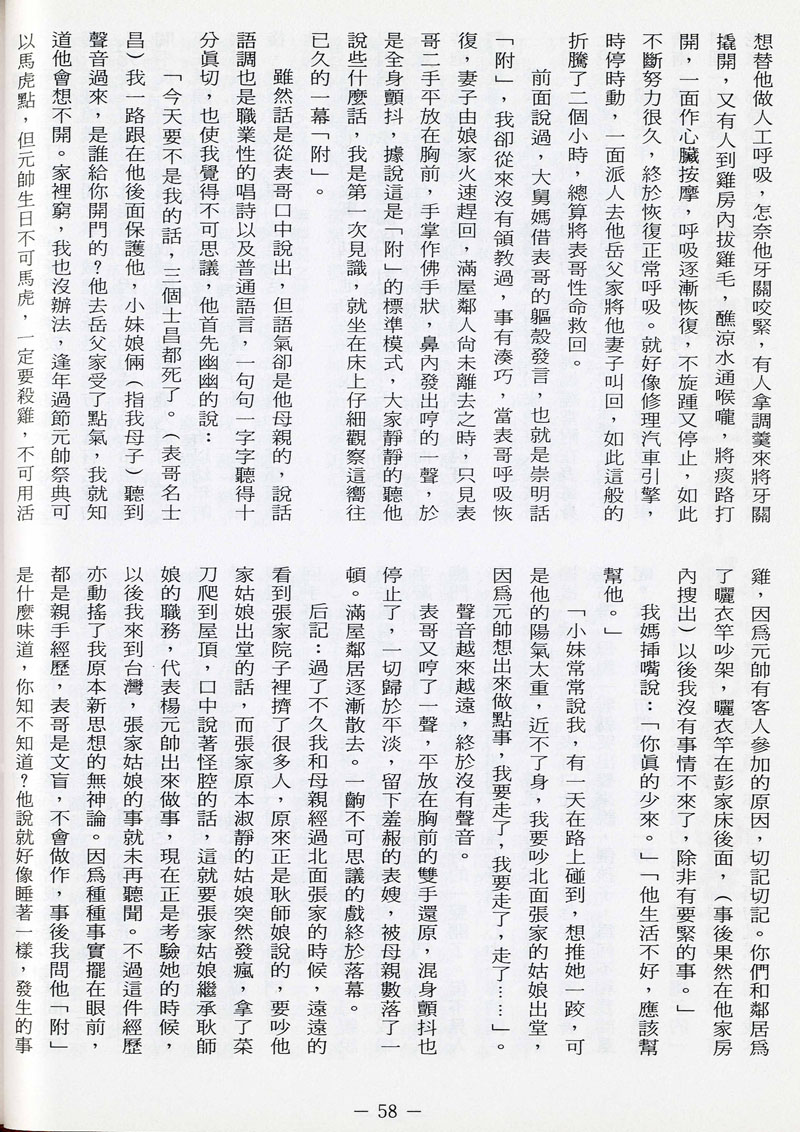 想替他做人工呼吸，怎奈他牙關咬緊，有人拿調羹來將牙關
撬開，又有人到雞房內拔雞毛，醮涼水通喉嚨，將痰路打
開，一面作心臟按摩，呼吸逐漸恢復，不旋踵又停止，如此
不斷努力很久，終於恢復正常呼吸。就好像修理汽車引擎，
時停時動，一面派人去他岳父家將他妻子叫回，如此這般的
折騰了二個小時，總算將表哥性命救回。
前面說過，大舅媽借表哥的軀殼發言，也就是崇明話
「附」，我卻從來沒有領教過，事有湊巧，當表哥呼吸恢
復，妻子由娘家火速趕回，滿屋鄰人尙未離去之時，只見表
哥二手平放在胸前，手掌作佛手狀，鼻內發出哼的一聲，於
是全身顫抖，據說這是「附」的標準模式，大家靜靜的聽他
說些什麼話，我是第一次見識，就坐在床上仔細觀察這嚮往
已久的一幕「附」。
雖然話是從表哥口中說出，但語氣卻是他母親的，說話
語調也是職業性的唱詩以及普通語言，一句句一字字聽得十
分眞切，也使我覺得不可思議，他首先幽幽的說：
「今天要不是我的話，三個士昌都死了。（表哥名士
昌）我一路跟在他後面保護他，小妹娘倆（指我母子）聽到
聲音過來，是誰給你開門的？他去岳父家受了點氣，我就知
道他會想不開。家裡窮，我也沒辦法，逢年過節元帥祭典可
以馬虎點，但元帥生日不可馬虎，一定要殺雞，不可用活
雞，因爲元帥有客人參加的原因，切記切記。你們和鄰居爲
了曬衣竿吵架，曬衣竿在彭家床後面，（事後果然在他家房
內搜出）以後我沒有事情不來了，除非有要緊的事。」
我媽揷嘴說：「你眞的少來。」「他生活不好，應該幫
幫他。」
「小妹常常說我，有一天在路上碰到，想推她一跤，可
是他的陽氣太重，近不了身，我要吵北面張家的姑娘出堂，
因爲元帥想出來做點事，我要走了，我要走了，走了……」。
聲音越來越遠，終於沒有聲音。
表哥又哼了一聲，平放在胸前的雙手還原，混身顫抖也
停止了，一切歸於平淡，留下羞赧的表嫂，被母親數落了一
頓。滿屋鄰居逐漸散去。一齣不可思議的戲終於落幕。
后記：過了不久我和母親經過北面張家的時候，遠遠的
看到張家院子裡擠了很多人，原來正是耿師娘說的，要吵他
家姑娘出堂的話，而張家原本淑靜的姑娘突然發瘋，拿了菜
刀爬到屋頂，口中說著怪腔的話，這就要張家姑娘繼承耿師
娘的職務，代表楊元帥出來做事，現在正是考驗她的時候，
以後我來到台灣，張家姑娘的事就未再聽聞。不過這件經歷
亦動搖了我原本新思想的無神論。因爲種種事實擺在眼前，
都是親手經歷，表哥是文盲，不會做作，事後我問他「附」
是什麼味道，你知不知道？他說就好像睡著一樣，發生的事
— 58 —